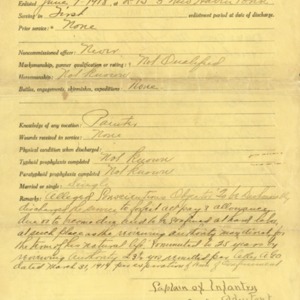 Enlisted June 1, 1918, at
Serving in First enlistment period at date of discharge.
Prior service: None
Noncommissioned officer: Never
Marksmanship, gunner qualification or rating: Not Qualified
Horsemanship: Not Known
Battles, engagements, skirmishes, expeditions: None
Knowledge of any vocation: Painter
Wounds received in service: None
Physical condition when discharged:
Typhoid prophylaxis completed Not Known
Paratyphoid prophylaxis completed Not Known
Married or single: Single
Remarks: Alleged Conscientious Objector To be dishonorably
discharged the service to forfeit all pay & allowances
due or to become due and to be confined at hard labor
at such place as the reviewing authority may direct for
the term of his natural life. Commuted to 25 years by
reviewing authority
dated March 31, 1919
Captain of Infantry
Adjutant